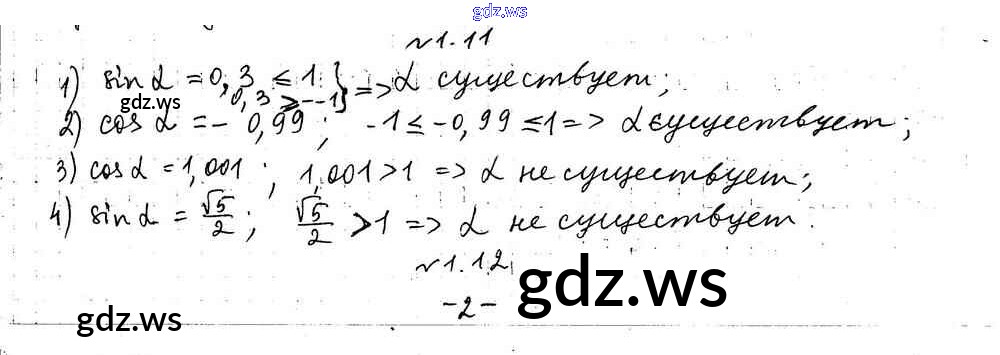 gdz.ws
№1.11
1) sin α = 0,3 ≤ 1 } => α существует;
gdz.ws 0,3 ≥ -1
2) cos α = - 0,99 ; -1 ≤ -0,99 ≤ 1 => α существует;
3) cos α = 1,001 ; 1,001 > 1 => α не существует;
4) sin α = √5/2 ; √5/2 > 1 => α не существует.
№1.12
gdz.ws
-2-
gdz.ws